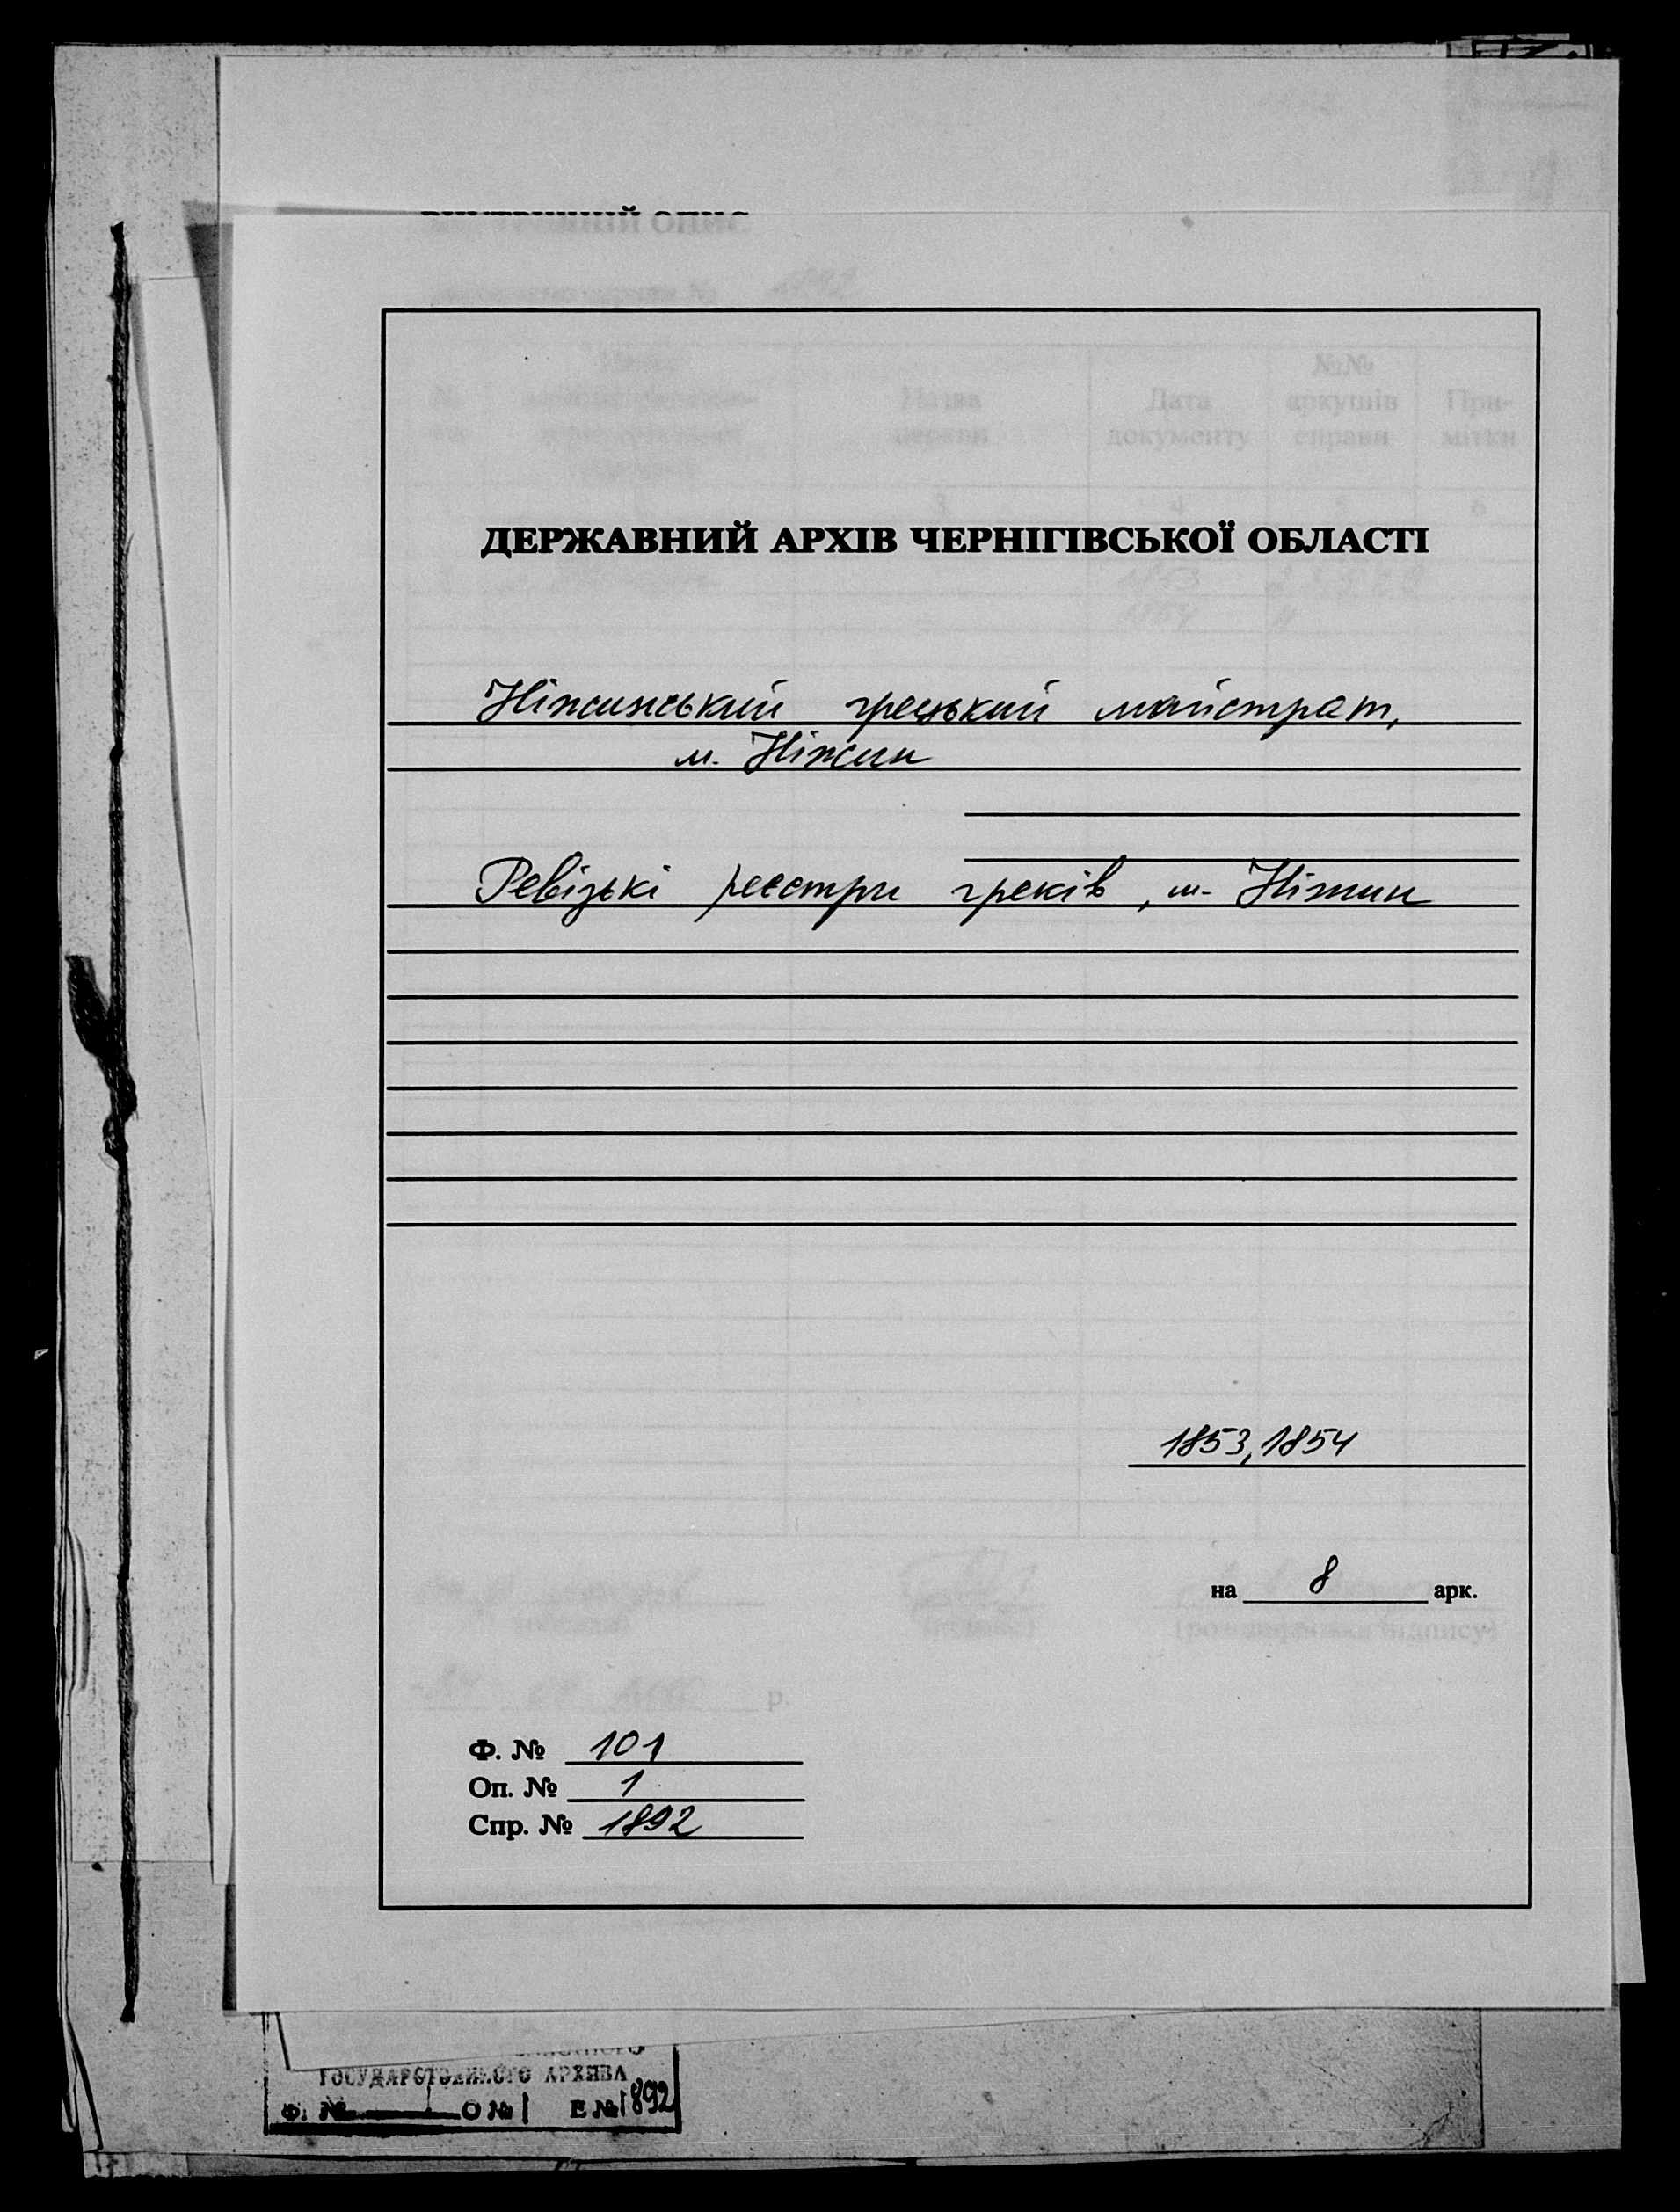 ДЕРЖАВНИЙ АРХІВ ЧЕРНІГІВСЬКОЇ ОБЛАСТІ
Ніжинський грецький майстрат,
м. Ніжин
Ревізькі реєстри греків, м. Ніжин
1853, 1854
на 8 арк.
Ф. № 101
Оп. № 1
Спр. № 1892
ГОСУДАРСТВЕННОГО АРХИВА
Ф. № О № 1 Е № 1892